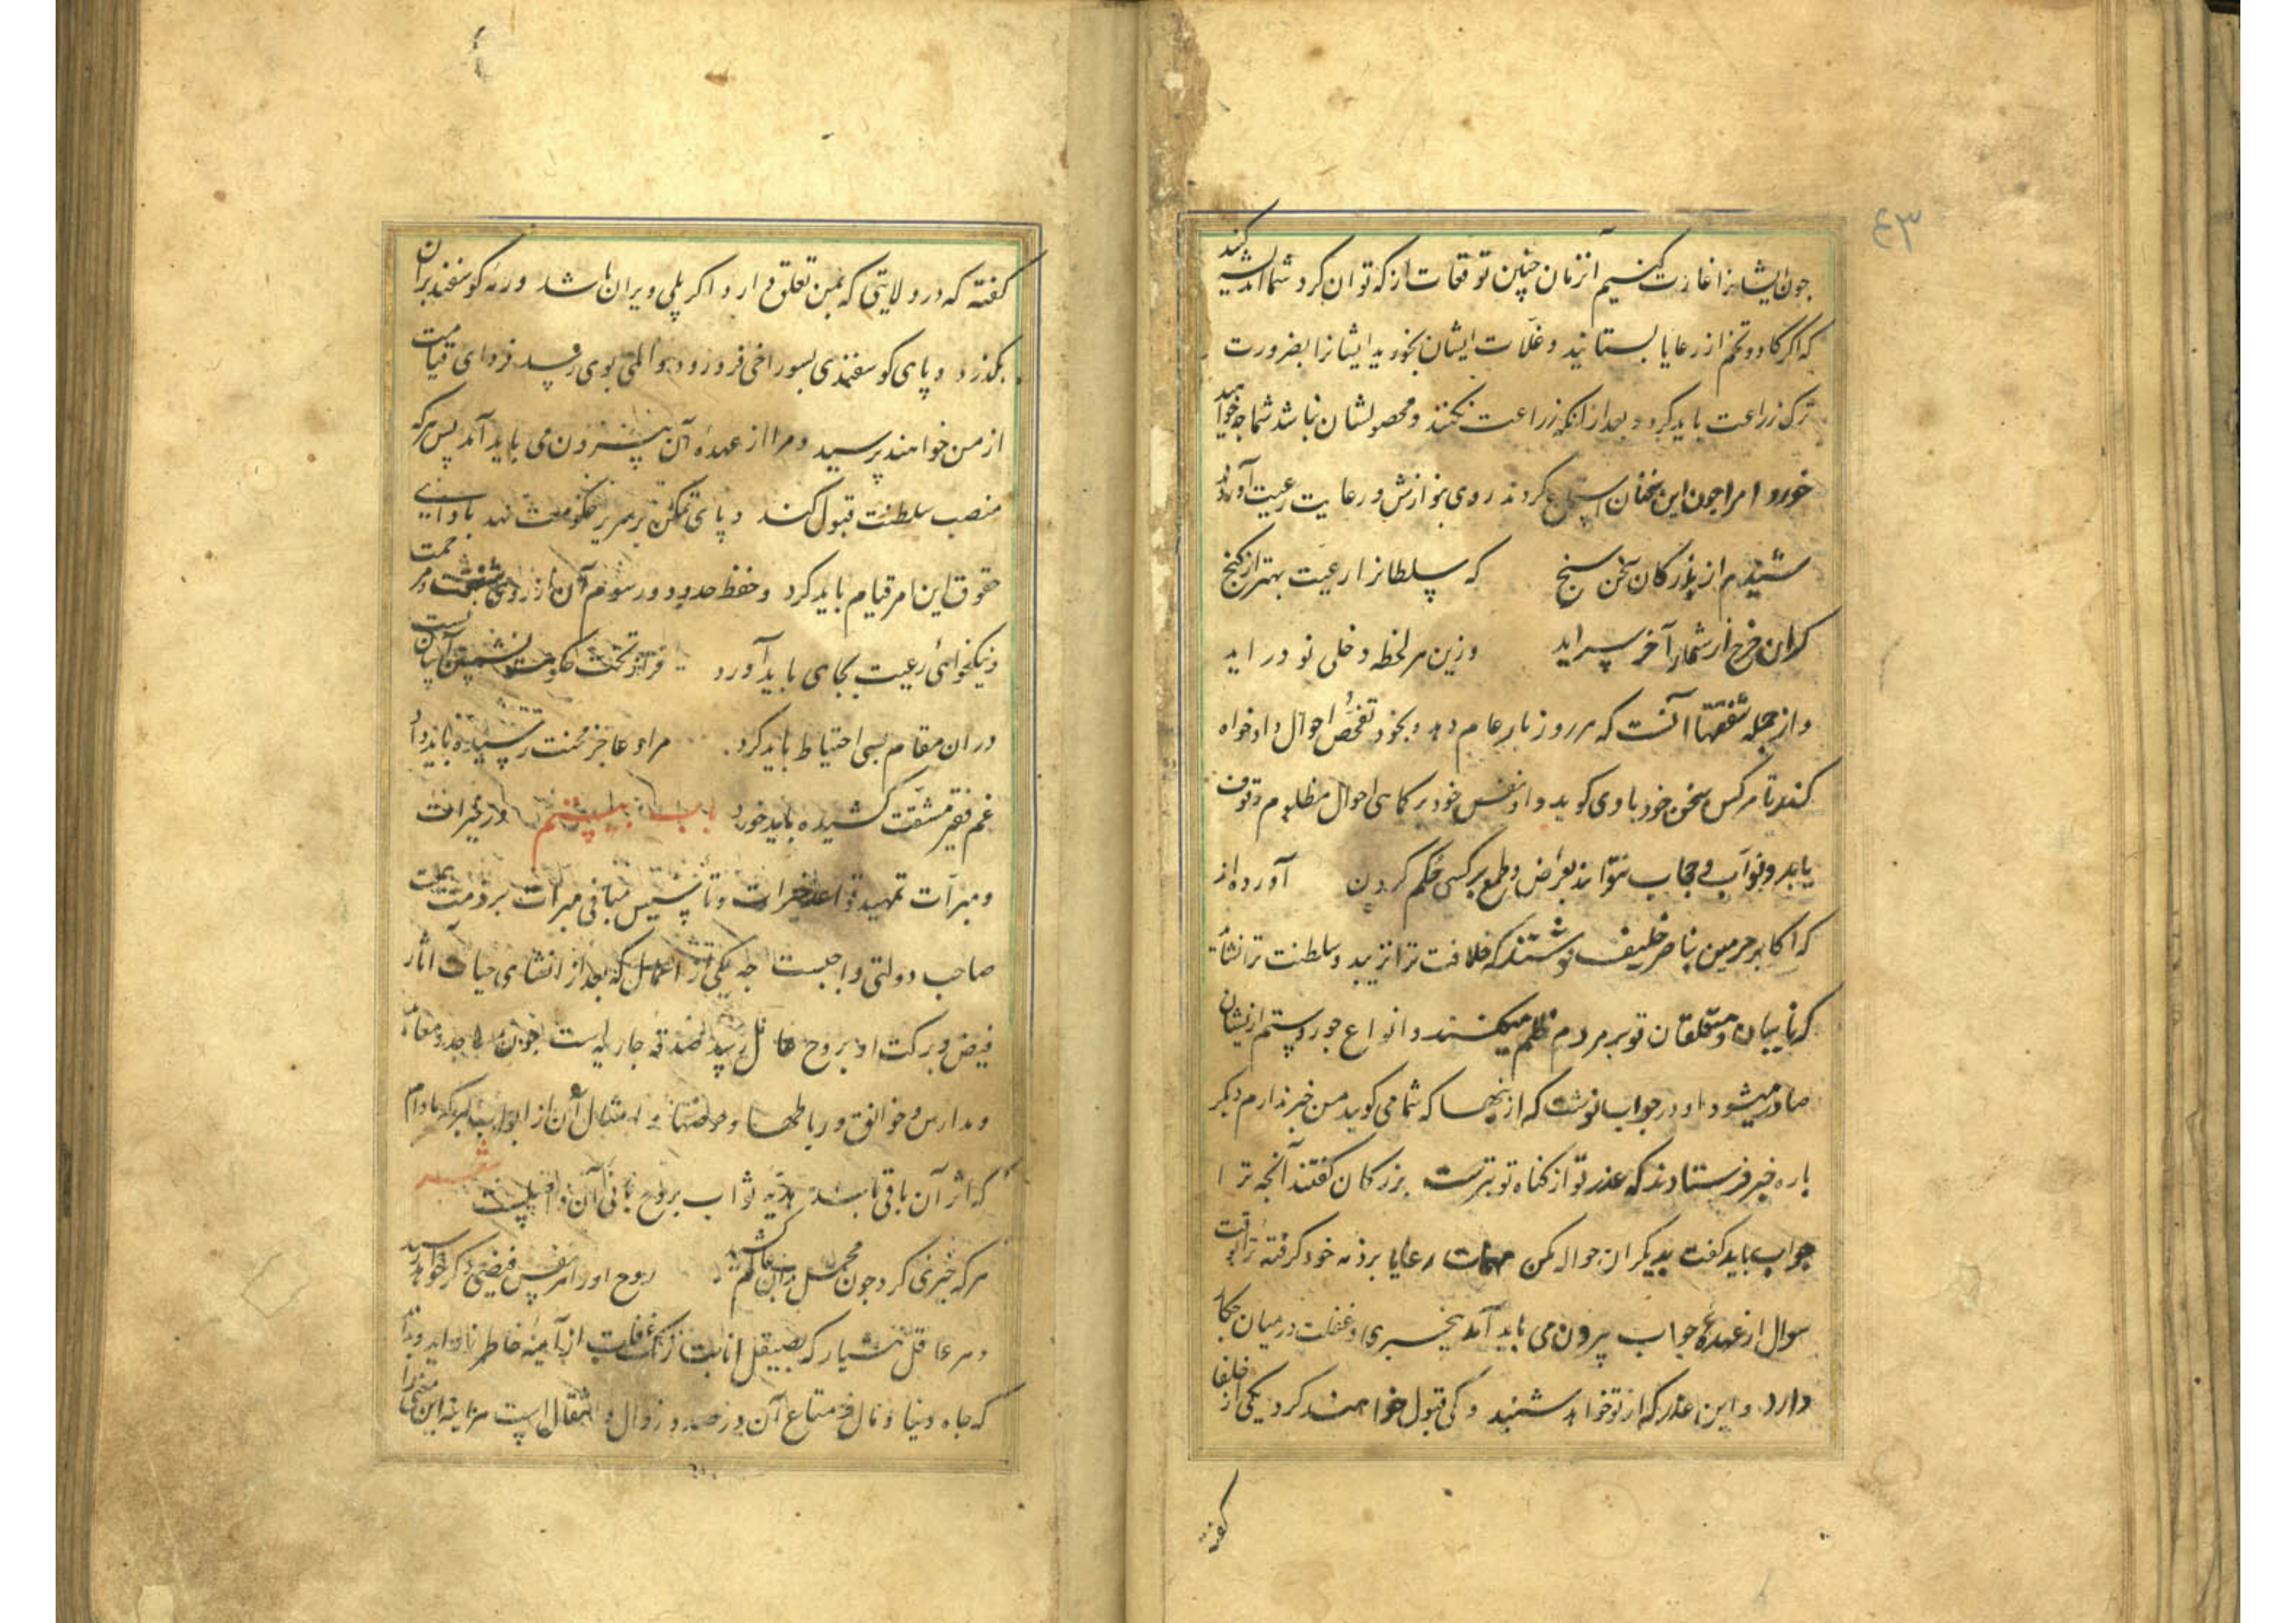 ۴۳
چون ایشانرا غارت کنیم آنزمان چنین توقعات از که توان کرد شما اندیشه کنید
که اگر گاو و تخم از رعایا بستانید و غلات ایشان بخورید ایشانرا بضرورت
ترک زراعت باید کرد و بعد از آنکه زراعت نکنند و محصولشان نباشد شما چه خواهید
خورد امرا چون این سخنان استماع کردند روی بنوازش و رعایت رعیت آوردند
شنیدم از بزرگان سخن سنج که سلطانرا رعیت بهتر از گنج
کزان خرج ار شمار آخر سر اید وزین هر لحظه دخلی نو در اید
و از جمله شفقتها آنست که هر روز بار عام دهد و بخود تفحص احوال دادخواه
کند تا هر کس سخن خود با وی گوید و او بنفس خود بر کماهی احوال مظلوم وقوف
یابد و نواب و حجاب نتوانند بغرض و طمع بر کسی حکم کردن آورده اند
که اکابر حرمین بناصر خلیفه نوشتند که خلافت ترا نزیبد و سلطنت ترا نشاید
که نایبان و متعلقان تو بر مردم ظلم میکنند و انواع جور و ستم از یشان
صادر میشود او در جواب نوشت که از ینها که شما می گوید من خبر ندارم دیگر
باره خبر فرستادند که عذر تو از گناه تو بترست بزرگان گفتند آنچه ترا
جواب باید گفت بدیگران حواله مکن مهمات رعایا بر ذمه خود گرفته ترا بوقت
سوال از عهده جواب بیرون می باید آمد بیخبری و غفلت در میان چکار
دارد و این عذر که از تو خواهد شنید و کی قبول خواهند کرد یکی از خلفا
گفته
گفته که در ولایتی که بمن تعلق دارد اگر پلی ویران باشد و رمه گوسفند بران
بگذرد و پای گوسفندی بسوراخی فرو رود و المی بوی رسد فردای قیامت
از من خواهند پرسید و مرا از عهده آن بیرون می باید آمد پس هر که
منصب سلطنت قبول کند و پای تمکن بر سریر حکومت نهد با دای
حقوق این امر قیام باید کرد و حفظ حدود و رسوم آن از روی شفقت و مرحمت
و نیکخواهی رعیت بجای باید آورد فراز تخت حکومت نشستن آسان نیست
در ان مقام بسی احتیاط باید کرد مراد عاجز محنت رسیده باید داد
غم فقیر مشقت کشیده باید خورد باب بیستم در خیرات
و مبرات تمهید قواعد خیرات و تأسیس مبانی مبرات بر ذمت همت
صاحب دولتی واجبست چه یکی از اعمال که بعد از انقضای حیات اثار
فیض و برکت او بروح عامل رسد صدقه جاریه است چون مساجد و معابد
و مدارس و خوانق و رباطها و حوضها و امثال آن از ابواب که مادام
که اثر آن باقی باشد هدیه ثواب بروح بانی آن واصلست شعر
هر که خیری کرد چون محمل بدان عالم کشید روح او را هر نفس فیضی دگر خواهد رسید
و هر عاقل هشیار که بصیقل انابت زنگ غفلت از آینه خاطر بزداید و بداند
که جاه دنیا و مال و متاع آن در صدد زوال و انتقال است هر اینه این معنی را